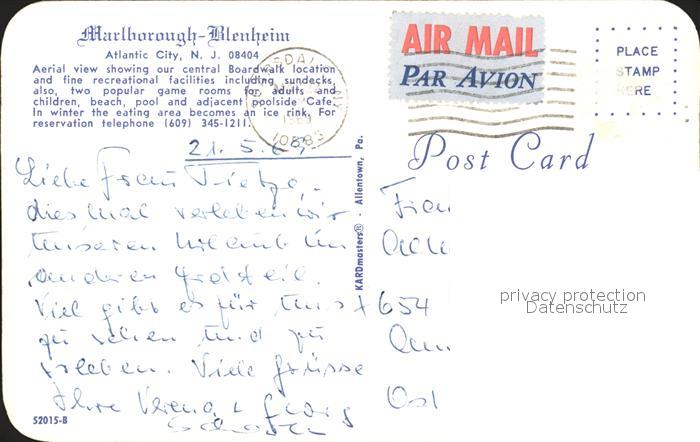 Marlborough-Blenheim
Atlantic City, N. J. 08404
Aerial view showing our central Boardwalk location
and fine recreational facilities including sundecks,
also, two popular game rooms for adults and
children, beach, pool and adjacent poolside Cafe.
In winter the eating area becomes an ice rink. For
reservation telephone (609) 345-1211.
AIR MAIL
PAR AVION
PLACE
STAMP
HERE
10583
Post Card
21.5.69
Liebe Frau
dies mal verleben wir
unseren Urlaub im
anderen Erdteil.
Viel gibt es für uns
zu sehen und zu
erleben. Viele Grüsse
Ihre Verena + Georg
KARDmasters® - Allentown, Pa.
Frau
654
Ost
privacy protection
Datenschutz
52015-B